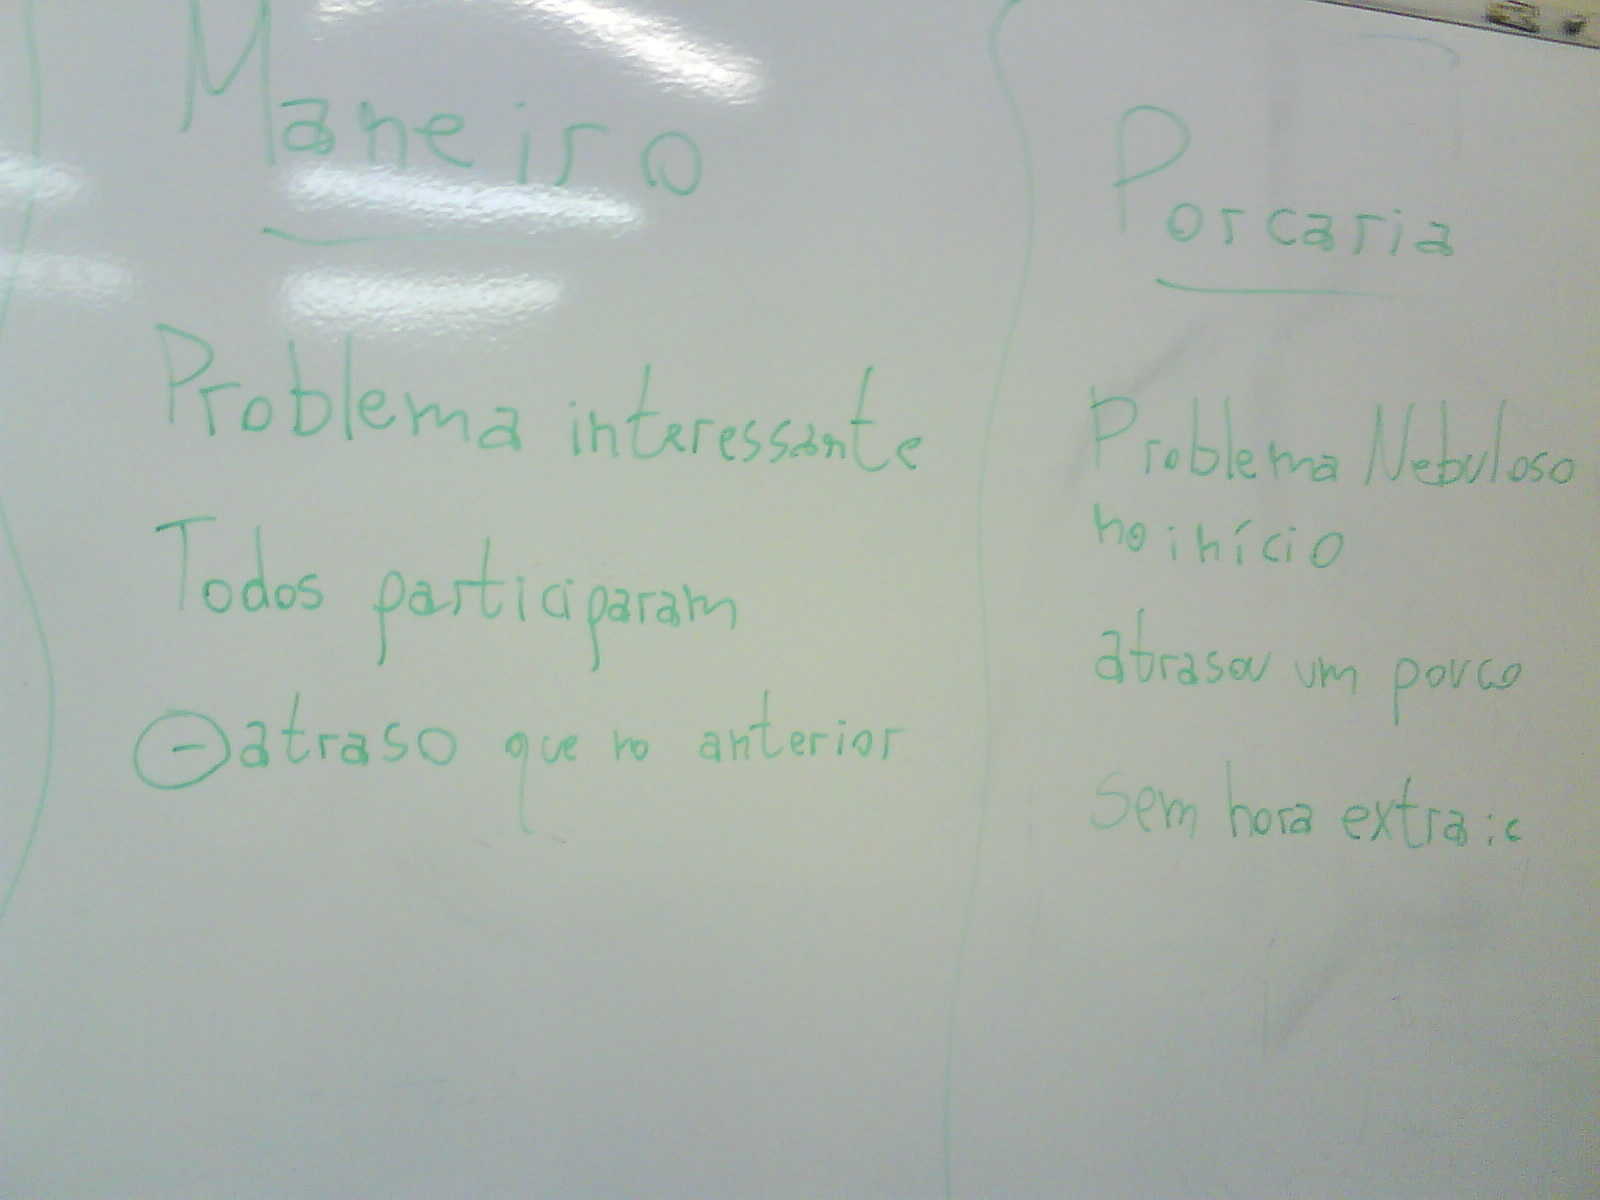 Maneiro
Problema interessante
Todos participaram
⊖ atraso que no anterior
Porcaria
Problema Nebuloso
no início
atrasou um pouco
Sem hora extra :c